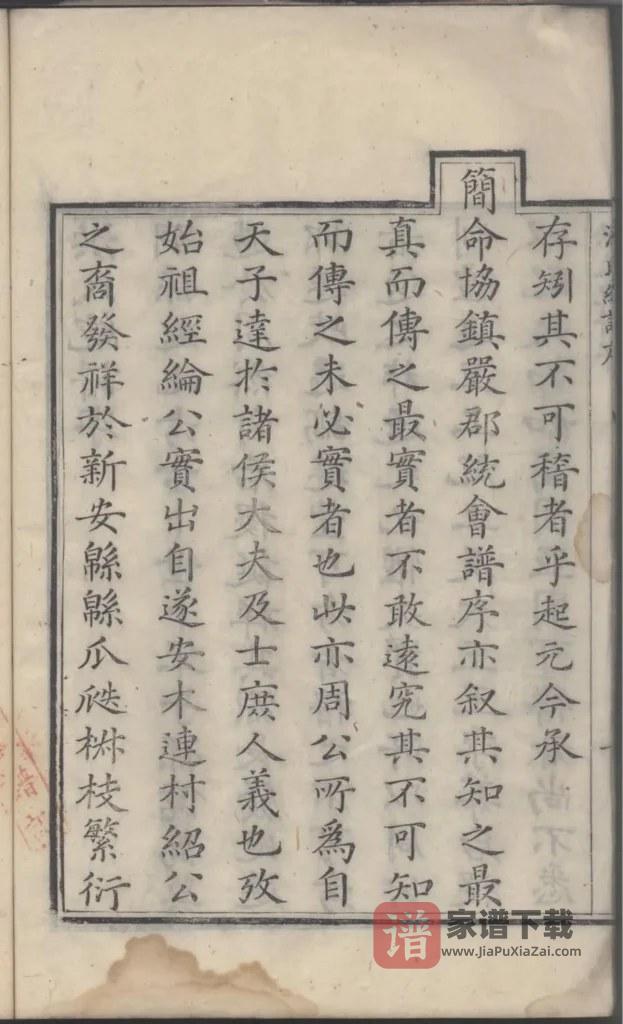 存矧其不可稽者乎起元今承
簡命協鎮嚴郡統會譜序亦叙其知之最
真而傳之最實者不敢遠究其不可知
而傳之未必實者也此亦周公所爲自
天子達扵諸侯大夫及士庶人義也攷
始祖經綸公實出自遂安木連村紹公
之裔發祥於新安緜緜瓜瓞椒枝繁衍
谱
家谱下载
www.JiaPuXiaZai.com